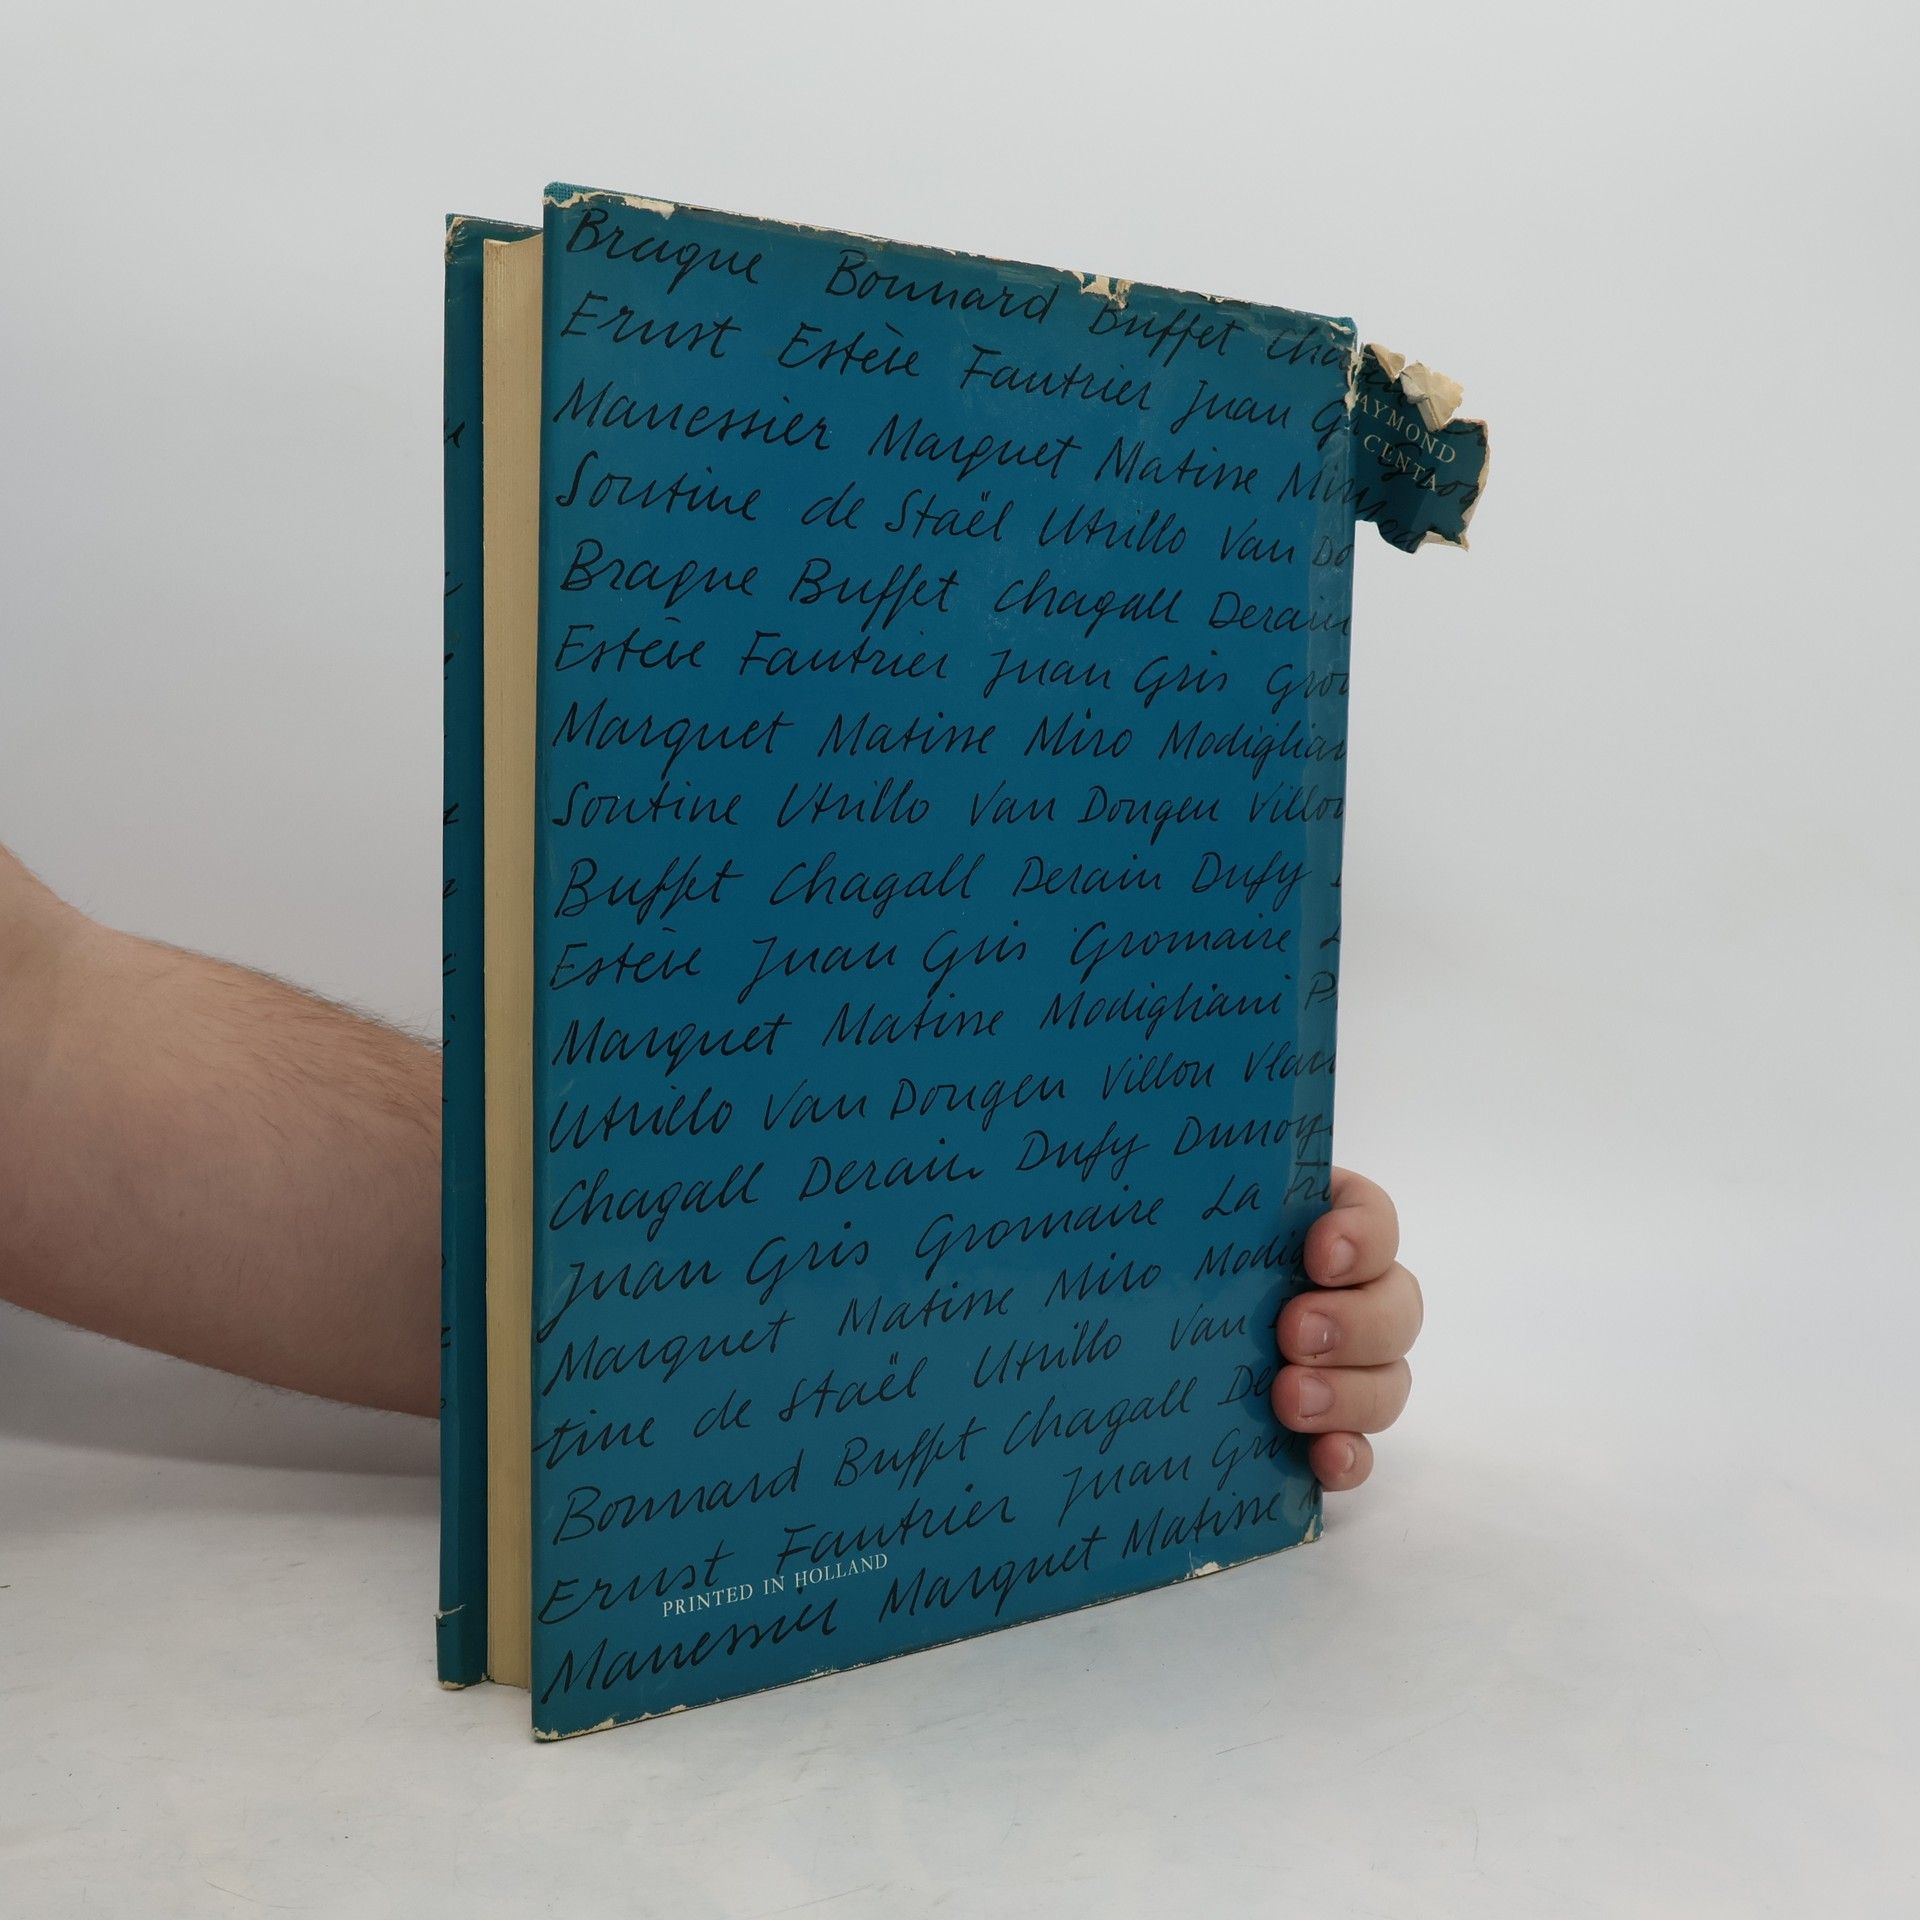 Braque Bonnard Buffet
Ernst Estève Fautrier Juan
Manessier Marquet Matisse
Soutine de Staël Utrillo Van Do
Braque Buffet Chagall Derain
Estève Fautrier Juan Gris Gro
Marquet Matisse Miro Modiglian
Soutine Utrillo Van Dongen Villon
Buffet Chagall Derain Dufy
Estève Juan Gris Gromaire
Marquet Matisse Modigliani P
Utrillo Van Dongen Villon Vlam
Chagall Derain Dufy Dunoy
Juan Gris Gromaire La Fre
Marquet Matisse Miro Modig
tine de Staël Utrillo Van
Bonnard Buffet Chagall De
Ernst Fautrier Juan Gris
PRINTED IN HOLLAND
Manessier Marquet Matisse
AYMOND
CENTA